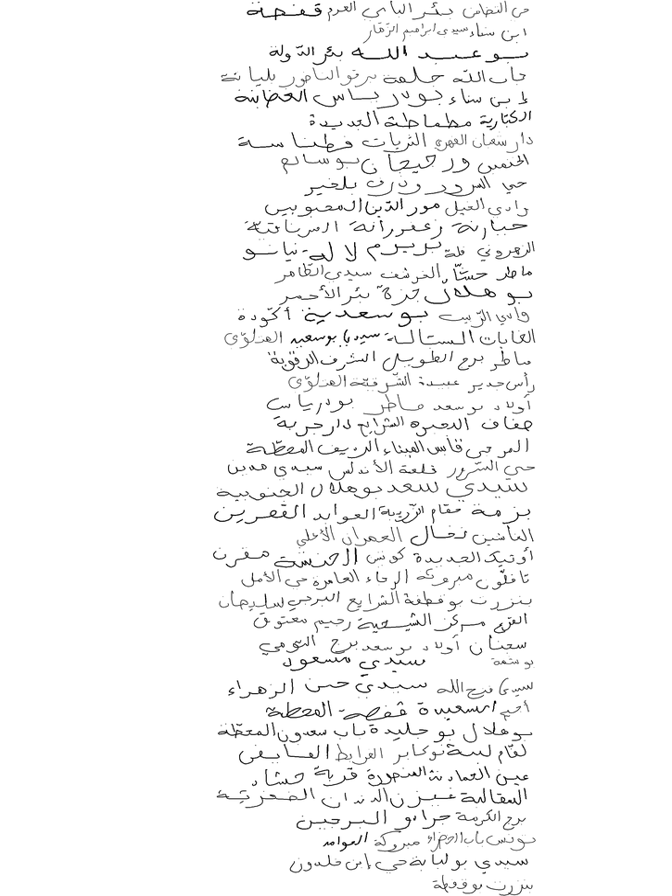 حي التضامن بئر الباي العرم قفصة
ابن سناء سيدي ابراهيم الزقار
بو عبد الله بئر الدولة
باب الله حلمة برقو الناظور بليانة
ابن سناء بودرياس العضابنة
الكبارية مطماطة الجديدة
دار شعبان الفهري الثريات فطناسة
ورحيجان بوسالم
حي السرور وذرف بلخير
وادي الغيل نور الدين
حبارنة زعفرانة
الزهروني قلة بريرم لالة نيانو
ماطر حشاد الخرشف سيدي الظاهر
بوهلال جزة بئر الأحمر
وادي الزيت بوسعدية أكودة
الغابات الستالة سيديا بوسعيد الهنلوي
ماطر برج الطويل الشرف
رأس جدير عبيدة الشرقية
أولاد بوسعد ماطر بودرياس
ضفاف البحيرة الشرايع دار جربة
المرجى قابس الميناء الريف المحطة
حي السرور قلعة الأندلس سيدي مدين
سيدي سعد بوهلال الجنوبية
بزمة مقام الزريبة العوابد القصرين
الماتلين نفال العمران الأعلى
أوتيك الجديدة كونس الخنسة مقرن
تافلون مبروكة الرجاء العامرة حي الأمل
بنزرت بوقطفة الشرايع البرجي سليجان
القرع مركز الشيحية رجيم معتوق
سجنان أولاد بوسعد برج التومي
بوشمة سيدي مسعود
سيدي فرج الله سيدي حسن الزهراء
السعيدة قفصة المحطة
بوهلال بوجليدة باب سعدون المحطة
لقام لبنة بوكابر المرابط العايفي
عين قرية حشاد
المقالبة غيزن الدندان الصخرية
برج الكرمة جرادو البرجين
تونس باب الخضراء مبروكة العوامد
سيدي بولبابة حي ابن خلدون
بنزرت بوقطفة